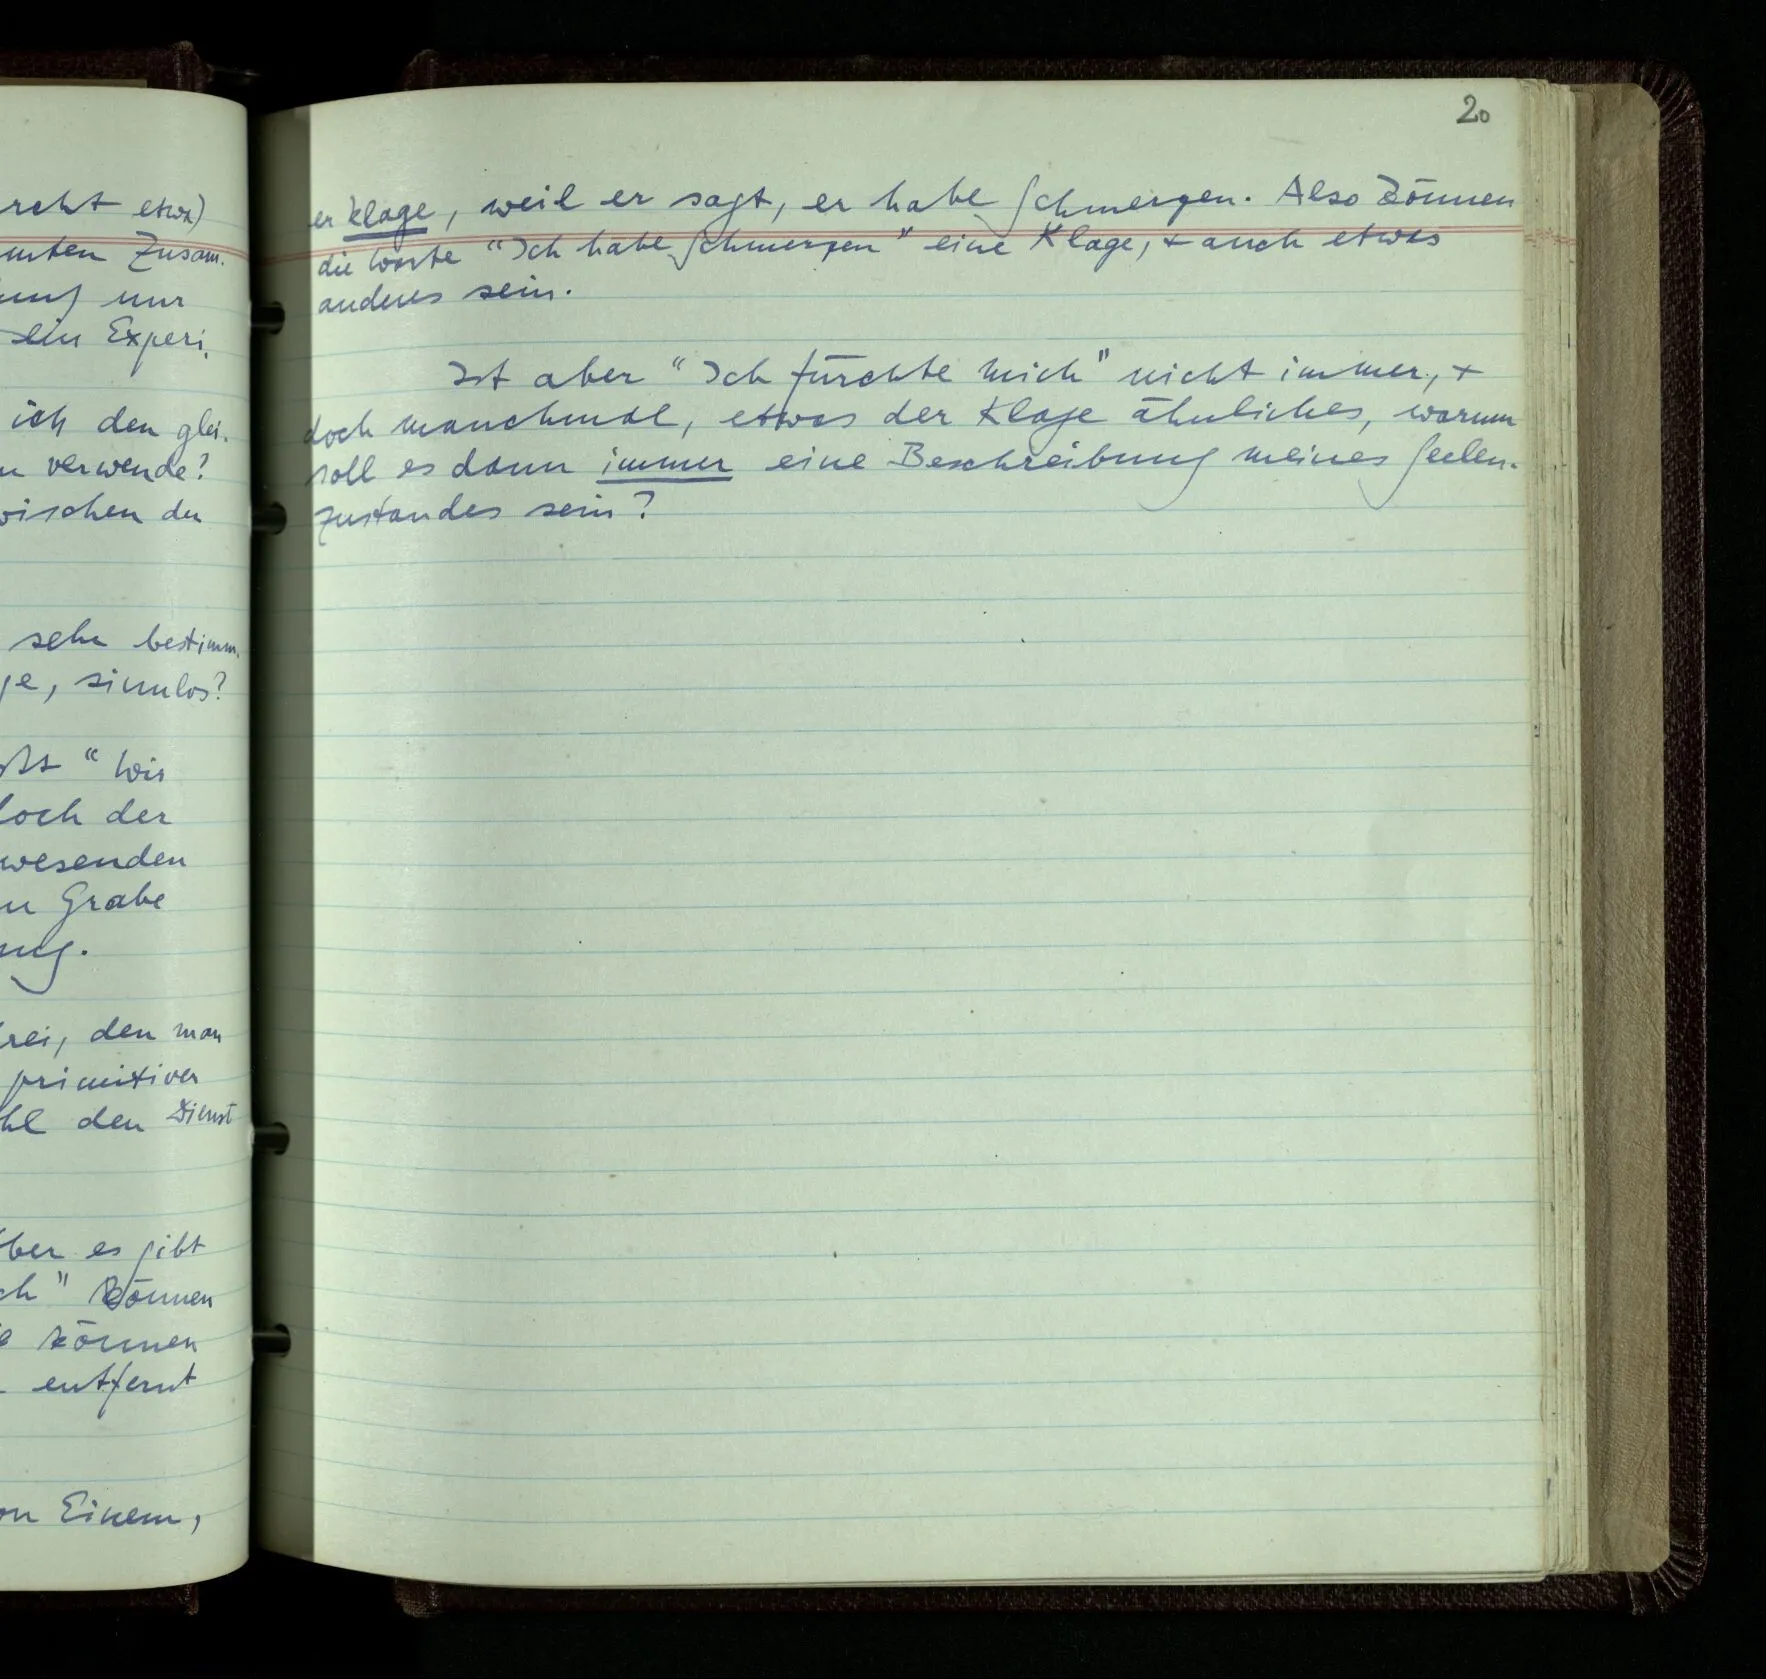 rcht etwa)
mten Zusam-
ung nur
ein Experi-
ich den glei-
n verwende?
wischen den
sehr bestimm-
ge, sinnlos?
"Wir
doch der
wesenden
n Grabe
ung.
rei, den man
primitiver
hl den Dienst
ber es gibt
ch" können
e können
entfernt
on Einem,
20
er klage, weil er sagt, er habe Schmerzen. Also können
die Worte "Ich habe Schmerzen" eine Klage, + auch etwas
anderes sein.
Ist aber "Ich fürchte mich" nicht immer, +
doch manchmal, etwas der Klage ähnliches, warum
soll es dann immer eine Beschreibung meines Seelen-
zustandes sein?